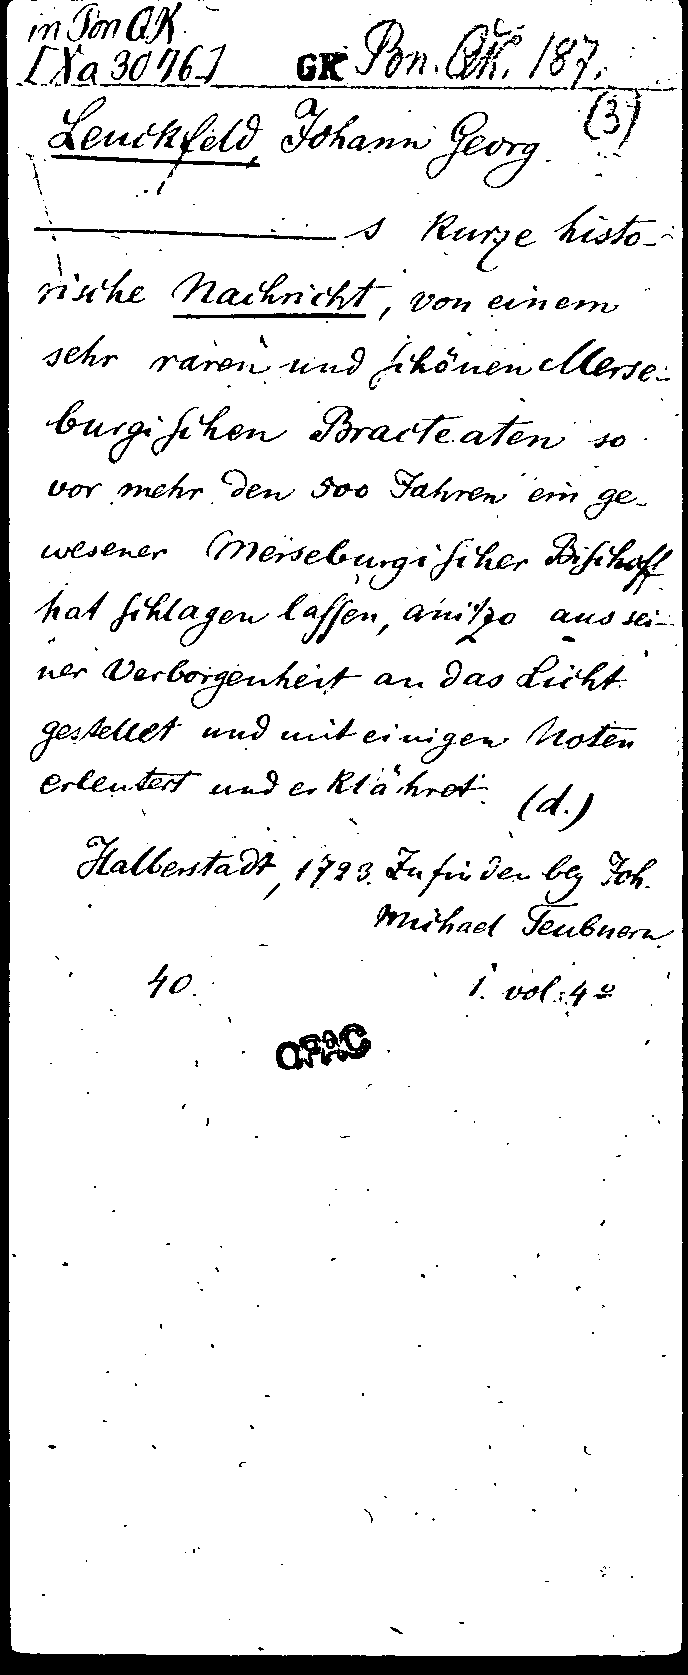 in Pon QK.
[Xa 3076.] GK Pon. QK. 187.
(3)
Leuckfeld, Johann Georg.
s kurze histo-
rische Nachricht, von einem
sehr raren und schönen Merse-
burgischen Bracteaten so
vor mehr den 500 Jahren ein ge-
wesener Merseburgischer Bischoff
hat schlagen lassen, anitzo aus sei-
ner Verborgenheit an das Licht
gestellet und mit einigen Noten
erleutert und erklähret. (d.)
Halberstadt, 1723. Zu finden bey Joh.
Michael Teubnern
40. 1. vol: 4º
OPAC